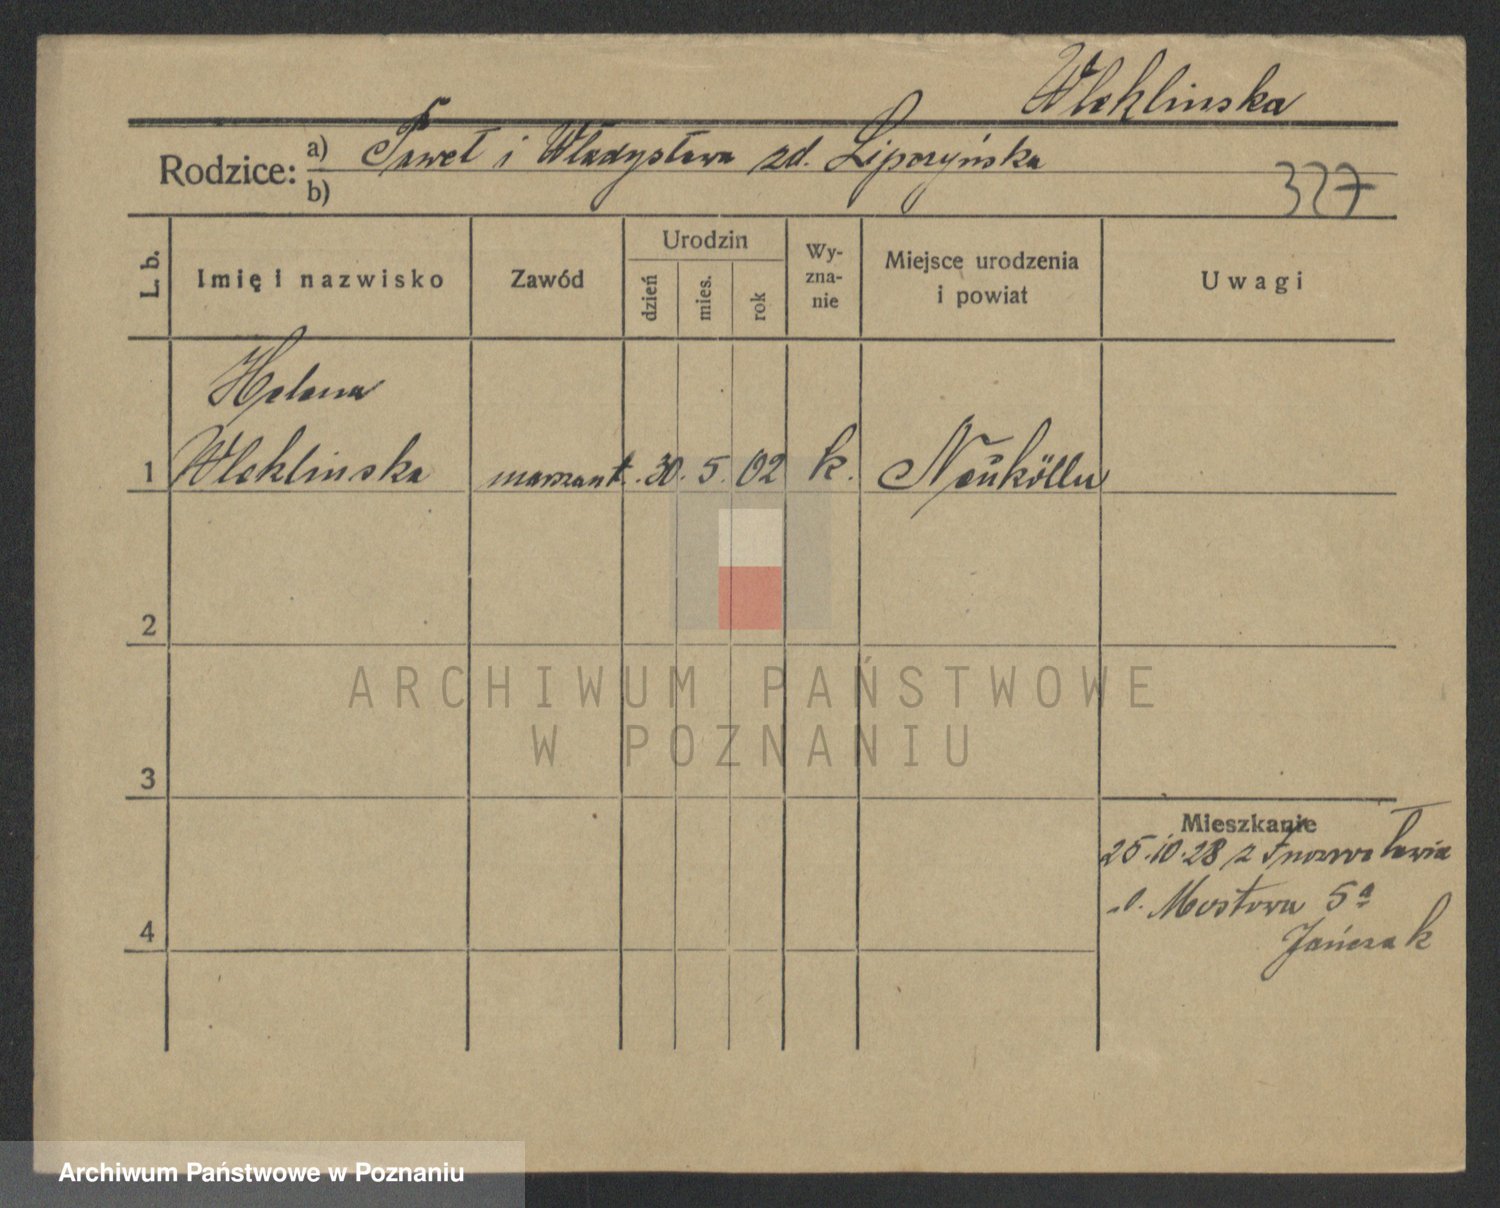 Wleklinska
Rodzice: a) Paweł i Władysława zd. Lipczyńska
b)
327
L. b.
Imię i nazwisko
Zawód
Urodzin
dzień
mies.
rok
Wy-
zna-
nie
Miejsce urodzenia
i powiat
Uwagi
Helena
1 Wleklinska marszant. 30. 5. 02 k. Neukölln
2
3
4
ARCHIWUM PAŃSTWOWE
W POZNANIU
Mieszkanie
25.10.28 z Inowrocławia
Mostowa 5a
Jańczak
Archiwum Państwowe w Poznaniu